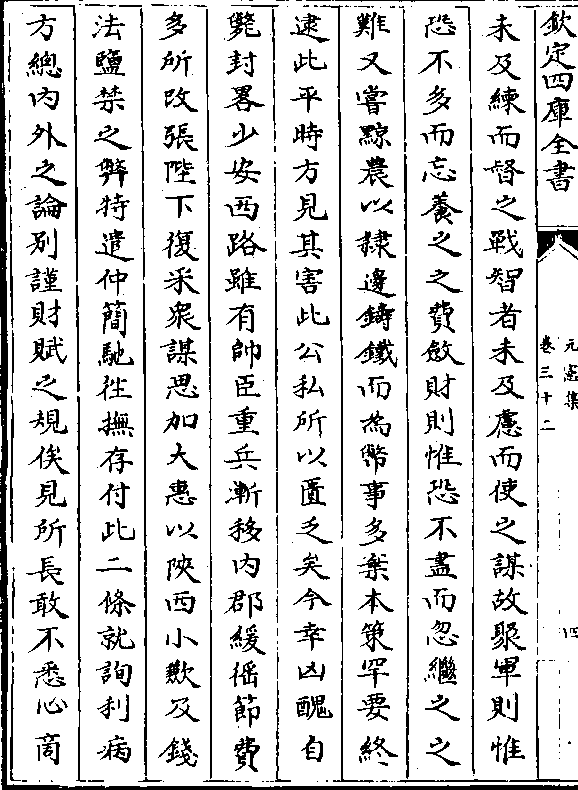 欽定四庫全書
元憲集
卷三十二
四
未及練而督之戰智者未及慮而使之謀故聚軍則惟
恐不多而忘養之之費斂財則惟恐不盡而忽繼之之
難又嘗黥農以隸邊鑄鐵而為幣事多棄本策罕要終
逮此平時方見其害此公私所以匱乏矣今幸凶醜自
斃封畧少安西路雖有帥臣重兵漸移內郡緩徭節費
多所改張陛下復采衆謀思加大惠以陜西小歉及錢
法鹽禁之弊特遣仲簡馳徃撫存付此二條就詢利病
方總內外之論別謹財賦之規俟見所長敢不悉心啇